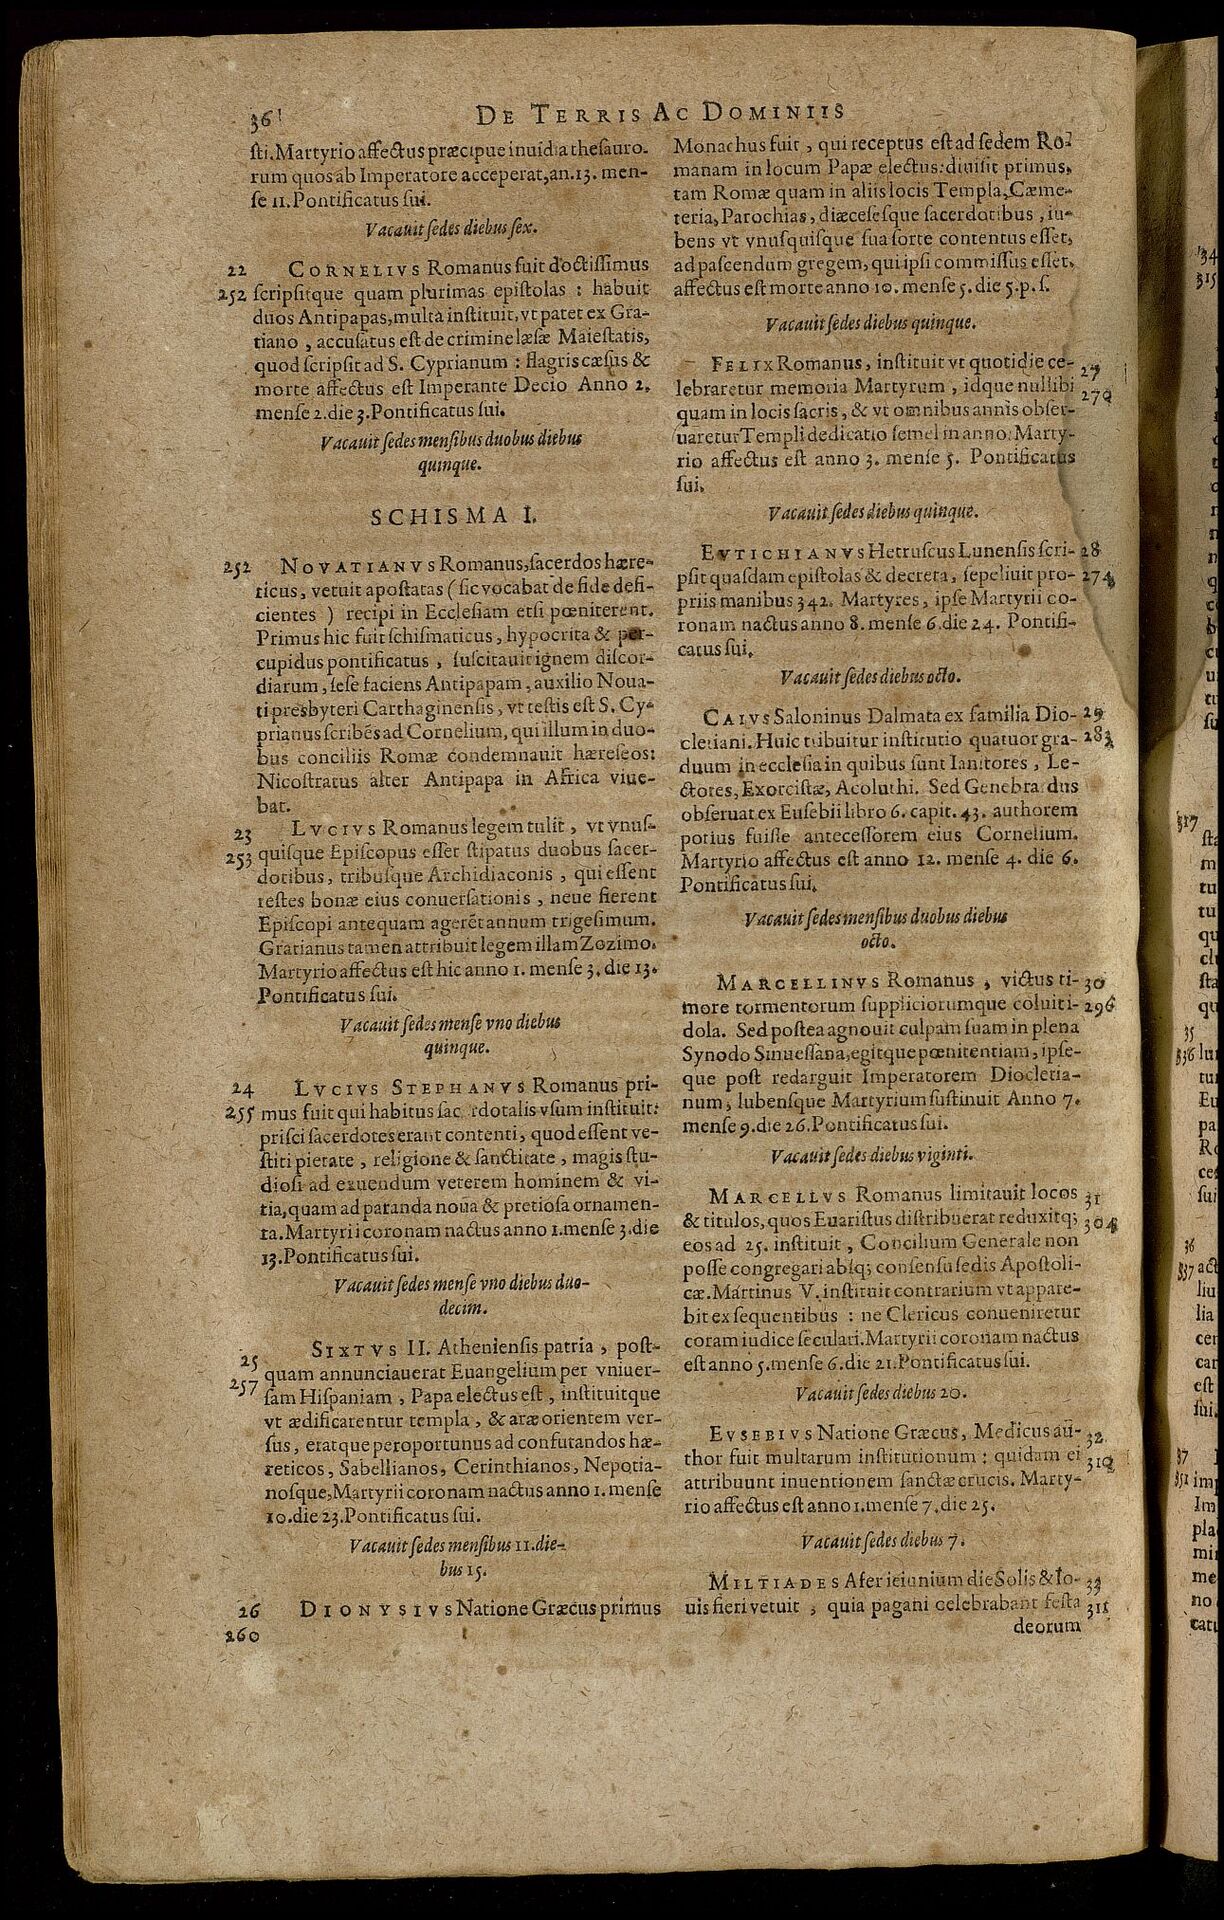 36
DE TERRIS AC DOMINIIS
sti. Martyrio affectus præcipue inuidia thesauro-
rum quos ab Imperatore acceperat, an. 13. men-
se 11. Pontificatus sui.
Vacauit sedes diebus sex.
22
252
CORNELIVS Romanus fuit doctissimus
scripsitque quam plurimas epistolas : habuit
duos Antipapas, multa instituit, vt patet ex Gra-
tiano , accusatus est de crimine læsæ Maiestatis,
quod scripsit ad S. Cyprianum : flagris cæsus &
morte affectus est Imperante Decio Anno 2.
mense 2. die 3. Pontificatus sui.
Vacauit sedes mensibus duobus diebus
quinque.
SCHISMA I.
252
NOVATIANVS Romanus, sacerdos hære-
ticus, vetuit apostatas ( sic vocabat de fide defi-
cientes ) recipi in Ecclesiam etsi pœniterent.
Primus hic fuit schismaticus, hypocrita & per-
cupidus pontificatus , suscitauit ignem discor-
diarum, sese faciens Antipapam, auxilio Noua-
ti presbyteri Carthaginensis, vt testis est S. Cy-
prianus scribēs ad Cornelium, qui illum in duo-
bus conciliis Romæ condemnauit hæreseos:
Nicostratus alter Antipapa in Africa viue-
bat.
23
253
LVCIVS Romanus legem tulit, vt vnus-
quisque Episcopus esset stipatus duobus sacer-
dotibus, tribusque Archidiaconis , qui essent
testes bonæ eius conuersationis, neue fierent
Episcopi antequam agerēt annum trigesimum.
Gratianus tamen attribuit legem illam Zozimo.
Martyrio affectus est hic anno 1. mense 3. die 13.
Pontificatus sui.
Vacauit sedes mense vno diebus
quinque.
24
255
LVCIVS STEPHANVS Romanus pri-
mus fuit qui habitus sac rdotalis vsum instituit:
prisci sacerdotes erant contenti, quod essent ve-
stiti pietate , religione & sanctitate , magis stu-
diosi ad exuendum veterem hominem & vi-
tia, quam ad paranda noua & pretiosa ornamen-
ta. Martyrii coronam nactus anno 1. mense 3. die
13. Pontificatus sui.
Vacauit sedes mense vno diebus duo-
decim.
25
257
SIXTVS II. Atheniensis patria , post-
quam annunciauerat Euangelium per vniuer-
sam Hispaniam , Papa electus est , instituitque
vt ædificarentur templa , & aræ orientem ver-
sus, eratque peroportunus ad confutandos hæ-
reticos, Sabellianos, Cerinthianos, Nepotia-
nosque, Martyrii coronam nactus anno 1. mense
10. die 23. Pontificatus sui.
Vacauit sedes mensibus 11. die-
bus 15.
26
260
DIONYSIVS Natione Græcus primus
Monachus fuit , qui receptus est ad sedem Ro-
manam in locum Papæ electus: diuisit primus,
tam Romæ quam in aliis locis Templa, Cæme-
teria, Parochias, diæcesesque sacerdotibus , iu-
bens vt vnusquisque sua sorte contentus esset,
ad pascendum gregem, qui ipsi commissus esset,
affectus est morte anno 10. mense 5. die 5. p. s.
Vacauit sedes diebus quinque.
FELIX Romanus, instituit vt quotidie ce-
27
lebraretur memoria Martyrum , idque nullibi
270
quam in locis sacris, & vt omnibus annis obser-
uaretur Templi dedicatio semel in anno. Marty-
rio affectus est anno 3. mense 5. Pontificatus
sui.
Vacauit sedes diebus quinque.
EVTICHIANVS Hetruscus Lunensis scri-
28
psit quasdam epistolas & decreta, sepeliuit pro-
274
priis manibus 342. Martyres, ipse Martyrii co-
ronam nactus anno 8. mense 6. die 24. Pontifi-
catus sui.
Vacauit sedes diebus octo.
CAIVS Saloninus Dalmata ex familia Dio-
29
cletiani. Huic tribuitur institutio quatuor gra-
283
duum in ecclesia in quibus sunt Ianitores, Le-
ctores, Exorcistæ, Acoluthi. Sed Genebra dus
obseruat ex Eusebii libro 6. capit. 43. authorem
potius fuisse antecessorem eius Cornelium.
Martyrio affectus est anno 12. mense 4. die 6.
Pontificatus sui.
Vacauit sedes mensibus duobus diebus
octo.
MARCELLINVS Romanus , victus ti-
30
more tormentorum suppliciorumque coluit i-
296
dola. Sed postea agnouit culpam suam in plena
Synodo Sinuessana, egitque pœnitentiam, ipse-
que post redarguit Imperatorem Diocletia-
num, lubensque Martyrium sustinuit Anno 7.
mense 9. die 26. Pontificatus sui.
Vacauit sedes diebus viginti.
MARCELLVS Romanus limitauit locos
31
& titulos, quos Euaristus distribuerat reduxitq;
304
eos ad 25. instituit , Concilium Generale non
posse congregari absq; consensu sedis Apostoli-
cæ. Martinus V. instituit contrarium vt appare-
bit ex sequentibus : ne Clericus conueniretur
coram iudice seculari. Martyrii coronam nactus
est anno 5. mense 6. die 21. Pontificatus sui.
Vacauit sedes diebus 20.
EVSEBIVS Natione Græcus, Medicus au-
32
thor fuit multarum institutionum : quidam ei
310
attribuunt inuentionem sanctæ crucis. Marty-
rio affectus est anno 1. mense 7. die 25.
Vacauit sedes diebus 7.
MILTIADES Afer ieiunium die Solis & Io-
33
uis fieri vetuit , quia pagani celebrabant festa
311
deorum